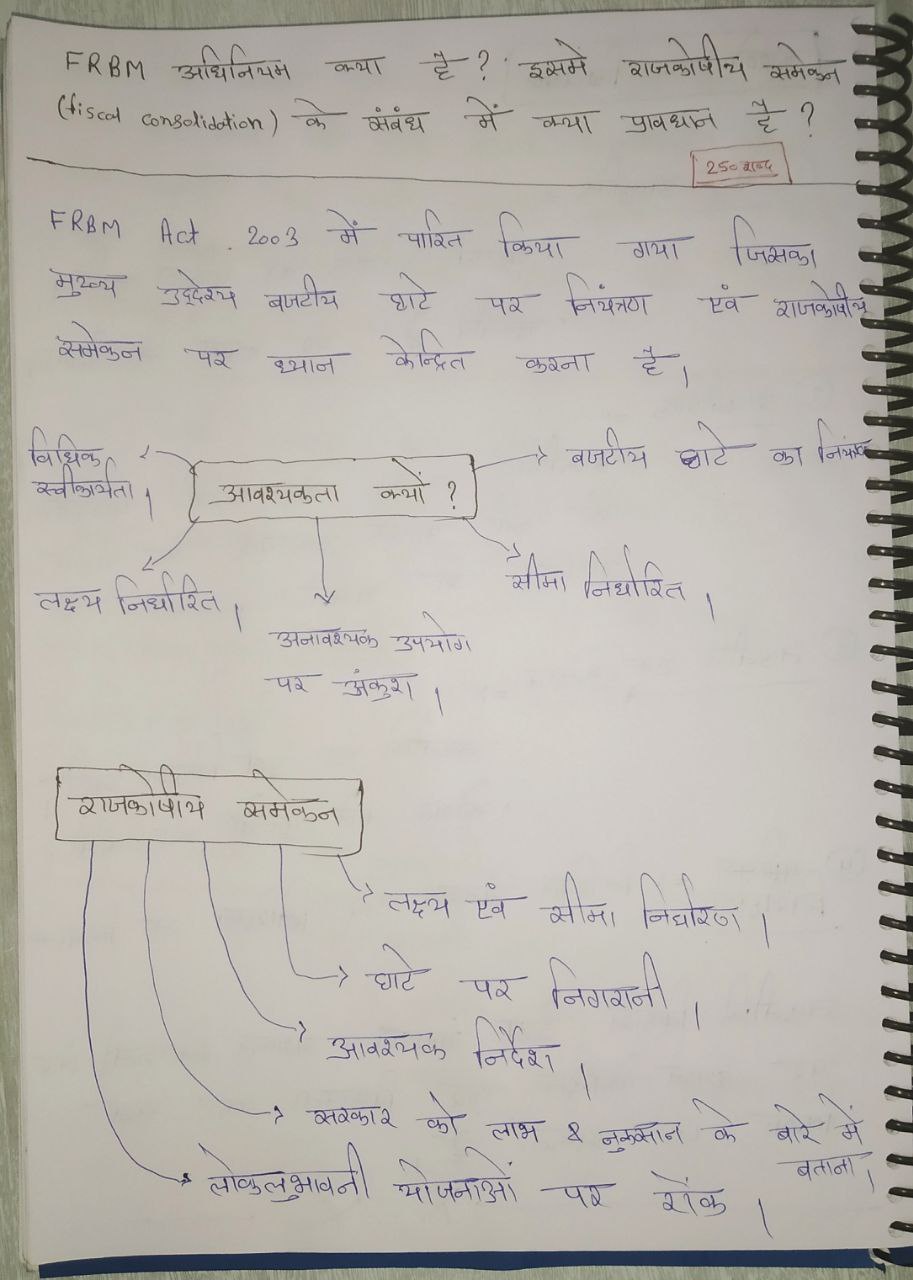 FRBM अधिनियम क्या है? इसमे राजकोषीय समेकन
(fiscal consolidation) के संबंध में क्या प्रावधान है?
250 शब्द
FRBM Act. 2003 में पारित किया गया जिसका
मुख्य उद्देश्य बजटीय घाटे पर नियंत्रण एवं राजकोषीय
समेकन पर ध्यान केन्द्रित करना है।
विधिक
स्वीकार्यता।
आवश्यकता क्यों?
बजटीय घाटे का
लक्ष्य निर्धारित।
सीमा निर्धारित।
अनावश्यक उपयोग
पर अंकुश।
राजकोषीय समेकन
लक्ष्य एवं सीमा निर्धारण।
घाटे पर निगरानी।
आवश्यक निर्देश।
सरकार को लाभ & नुकसान के बारे में
बताना।
लोकलुभावनी योजनाओं पर रोक।